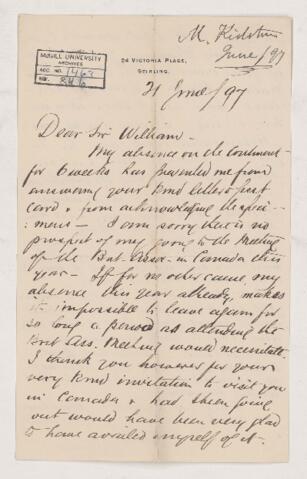 M. Kidston
June/97
McGILL UNIVERSITY
ARCHIVES
ACC. NO. 1463
REF.
24 VICTORIA PLACE,
STIRLING.
21 June/97
Dear Sir William -
My absence on the Continent
for 6 weeks has prevented me from
answering your kind letter & post
card & from acknowledging the speci-
mens - I am sorry there is no
prospect of my going to the Meeting
of the Brit. Assoc. in Canada this
year - If for no other cause my
absence this year already, makes
it impossible to leave again for
so long a period as attending the
Brit Ass. Meeting would necessitate.
I thank you however for your
very kind invitation to visit you
in Canada & had I been going
out would have been very glad
to have availed myself of it.